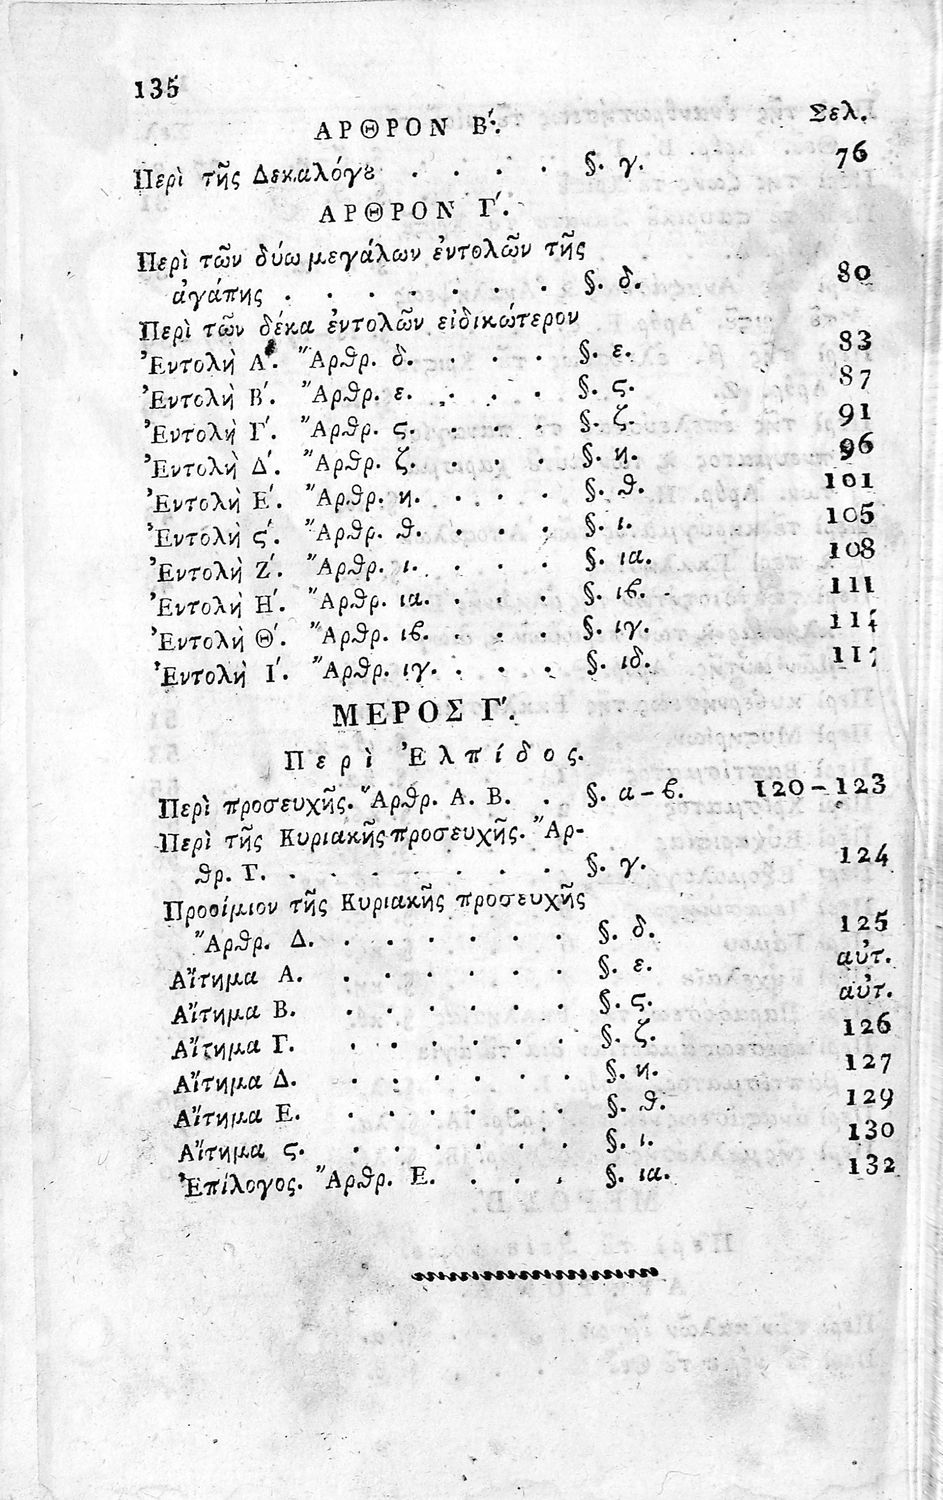 135
ΑΡΘΡΟΝ Β΄. Σελ.
Περὶ τῆς Δεκαλόγȣ . . . . §. γ. 76
ΑΡΘΡΟΝ Γ΄.
Περὶ τῶν δύω μεγάλων ἐντολῶν τῆς
ἀγάπης . . . . . . . §. δ. 80
Περὶ τῶν δέκα ἐντολῶν εἰδικώτερον
Ἐντολὴ Α΄. Ἄρθρ. δ. . . . §. ε. 83
Ἐντολὴ Β΄. Ἄρθρ. ε. . . . . §. ϛ. 87
Ἐντολὴ Γ΄. Ἄρθρ. ϛ. . . . . §. ζ. 91
Ἐντολὴ Δ΄. Ἄρθρ. ζ. . . . §. η. 96
Ἐντολὴ Ε΄. Ἄρθρ. η. . . . §. θ. 101
Ἐντολὴ ϛ΄. Ἄρθρ. θ. . . . §. ι. 105
Ἐντολὴ Ζ΄. Ἄρθρ. ι. . . . . §. ια. 108
Ἐντολὴ Η΄. Ἄρθρ. ια. . . . §. ιβ. 111
Ἐντολὴ Θ΄. Ἄρθρ. ιβ. . . . §. ιγ. 114
Ἐντολὴ Ι΄. Ἄρθρ. ιγ. . . . . §. ιδ.
ΜΕΡΟΣ Γ΄.
Περὶ Ἐλπίδος.
Περὶ προσευχῆς. Ἄρθρ. Α. Β. . §. α – β. 120 – 123
Περὶ τῆς Κυριακῆς προσευχῆς. Ἄρ-
θρ. Γ. . . . . . . . §. γ. 124
Προοίμιον τῆς Κυριακῆς προσευχῆς
Ἄρθρ. Δ. . . . . . . §. δ. 125
Αἴτημα Α. . . . . . . §. ε. αὐτ.
Αἴτημα Β. . . . . . . §. ϛ. αὐτ.
Αἴτημα Γ. . . . . . . §. ζ. 126
Αἴτημα Δ. . . . . . . §. η. 127
Αἴτημα Ε. . . . . . . §. θ. 129
Αἴτημα ϛ. . . . . . . §. ι. 130
Ἐπίλογος. Ἄρθρ. Ε. . . . §. ια. 132